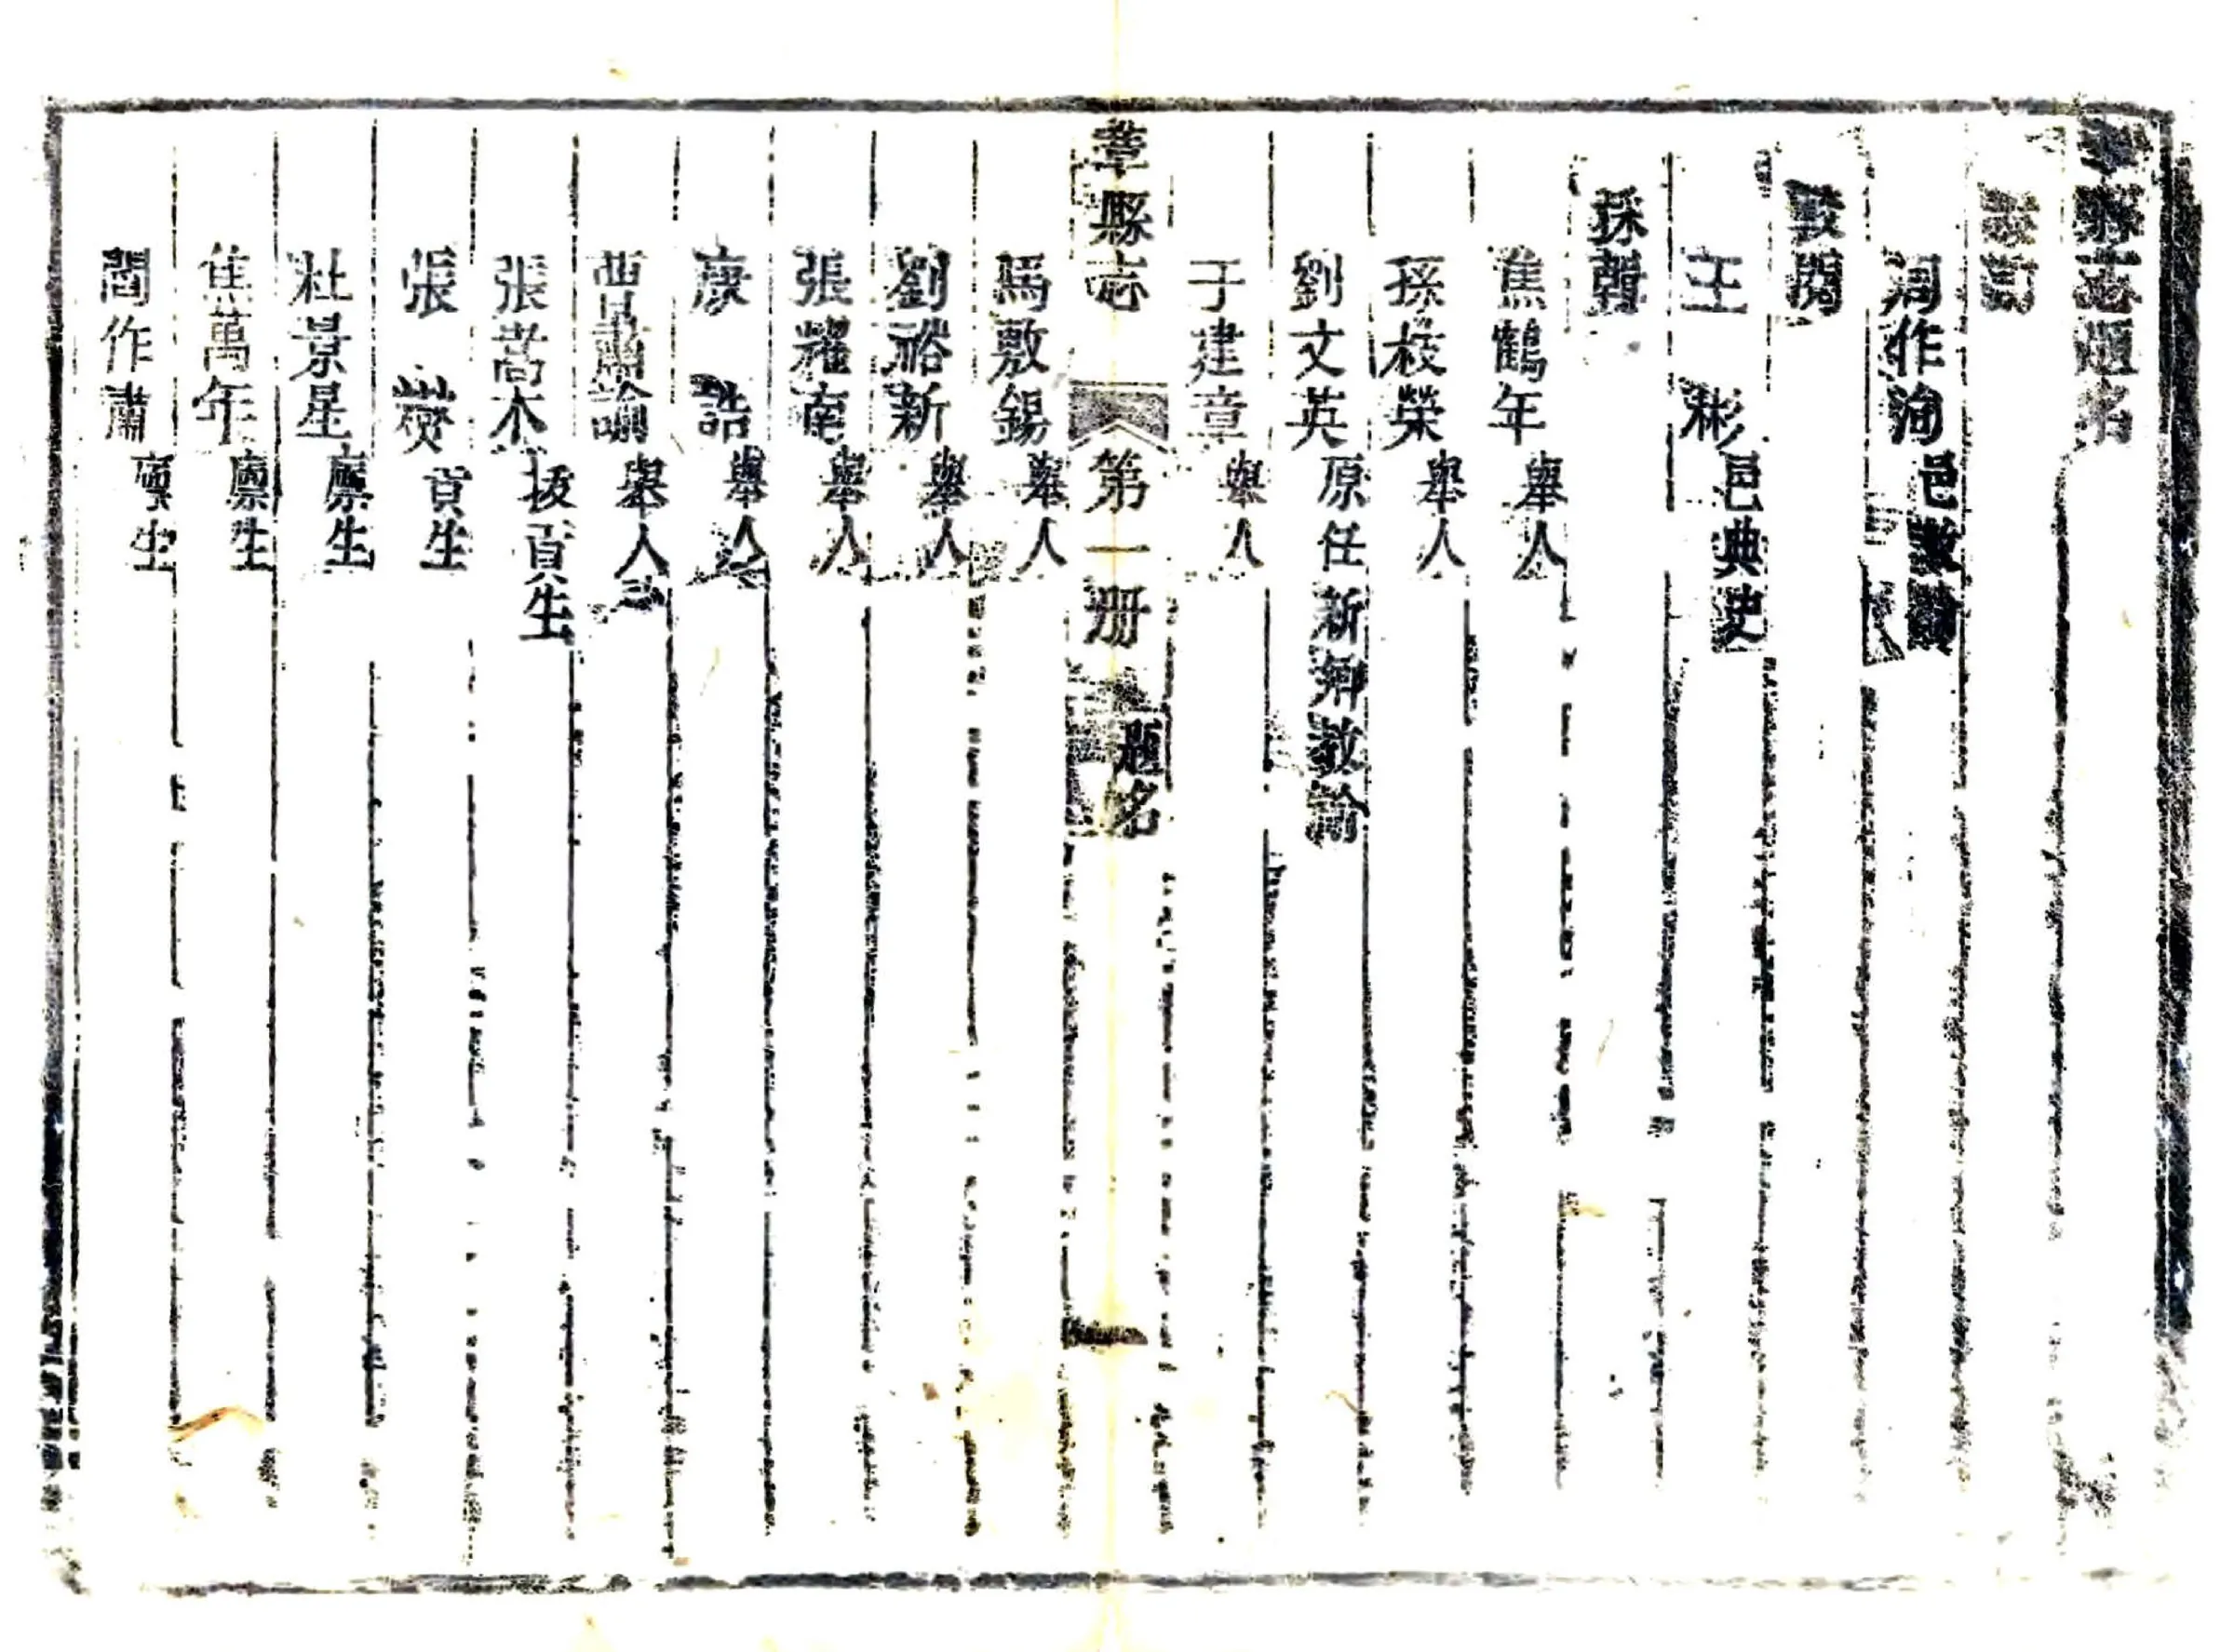 鞏縣志題名
參訂
周作洵邑教諭
較閱
王 彬邑典史
採輯
焦鶴年舉人
孫枝榮舉人
劉文英原任新鄉教諭
于建章舉人
鞏縣志 第一册 題名
馬敷錫舉人
劉裕新舉人
張耀南舉人
康 誥舉人
西 諭舉人
張嵩木拔貢生
張 貢生
杜景星廪生
焦萬年廪生
閻作肅廪生